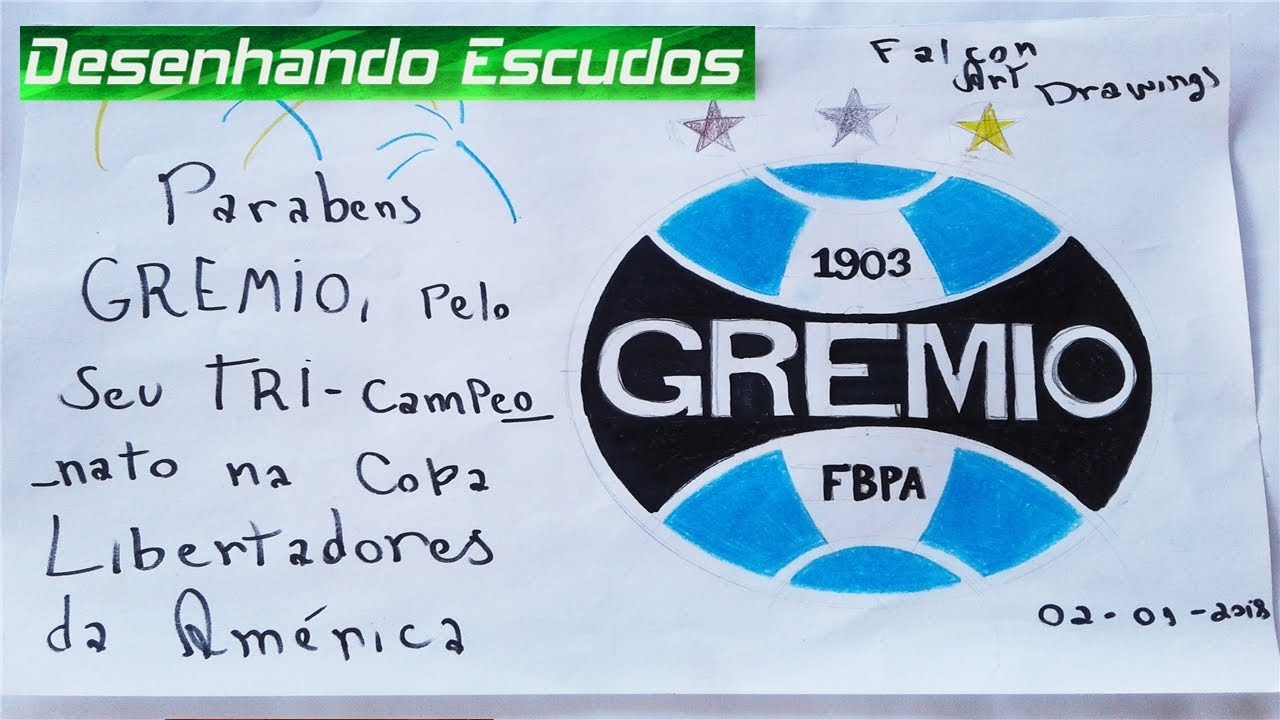 Desenhando Escudos
Falcon
Art Drawings
Parabens
GREMIO, Pelo
Seu TRI-Campeo
-nato na Copa
Libertadores
da América
1903
GREMIO
FBPA
02-01-2018